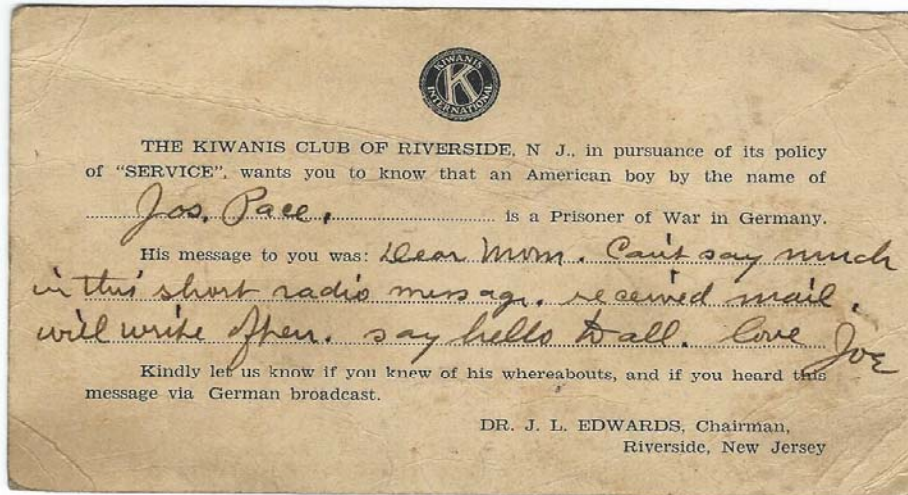 KIWANIS
K
INTERNATIONAL
THE KIWANIS CLUB OF RIVERSIDE, N J., in pursuance of its policy
of "SERVICE", wants you to know that an American boy by the name of
Jos. Pace. is a Prisoner of War in Germany.
His message to you was: Dear Mom. Can't say much
in this short radio message. received mail.
will write often. say hello to all. love Joe
Kindly let us know if you knew of his whereabouts, and if you heard this
message via German broadcast.
DR. J. L. EDWARDS, Chairman,
Riverside, New Jersey